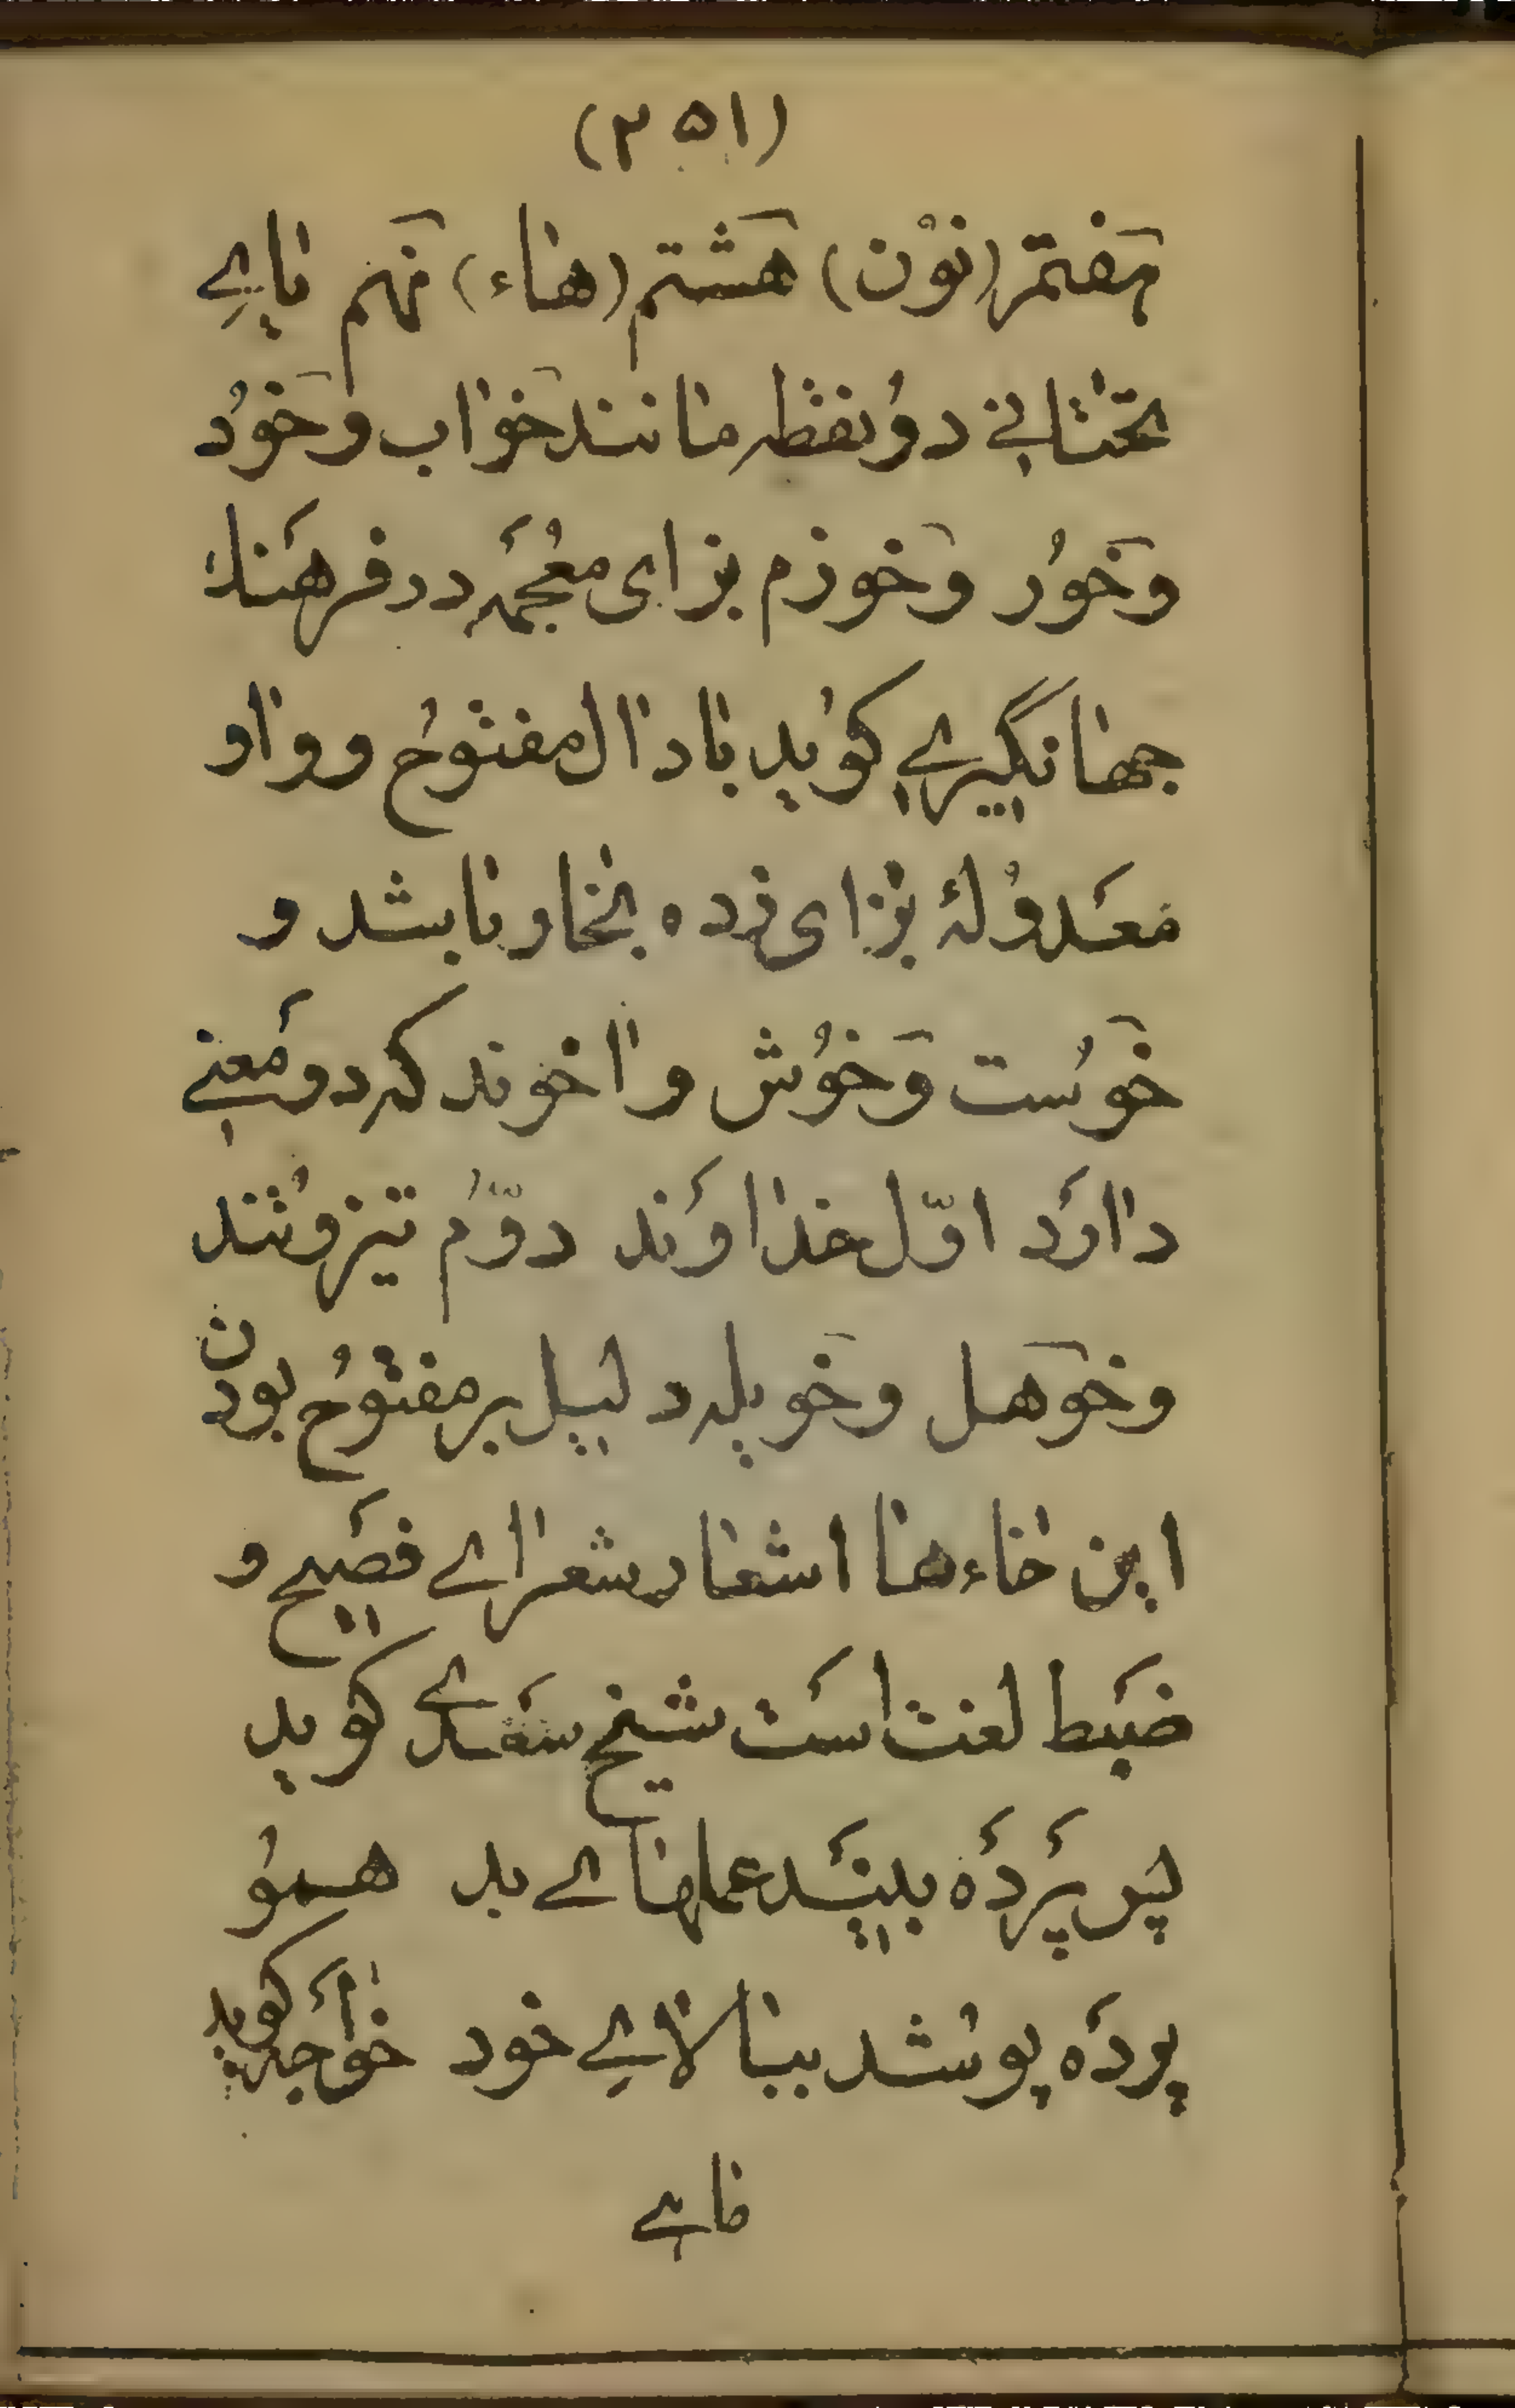 (۲۵۱)
هَفتم (نوْن) هَشتم (هاء) نَهم یایِ
تحتانی دوُنقطه مانند خَواب وخَوُد
وخَوُر وخَوزم بزای معُجَمه در فرهَنك
جهانگیری کوُید با دال مفتوُح وواو
معَدوُلۀ بزای زده بخاو باشد و
خَوسُت وَخَوُش واخوند که دو مَعنی
دارَد اوّل خداوَند دوّمُ تیز وتُند
وخَوهَل وخَویله دلیل بر مفتوُح بودن
این خاءها اشعار شعرای فصَیح و
ضبَط لغت است شیخ سَعَدی کوید
پس پَردَه بیَند عملهای بد همُو
پردَه پوشد ببالایِ خود خَواجَه کوید
ماهی